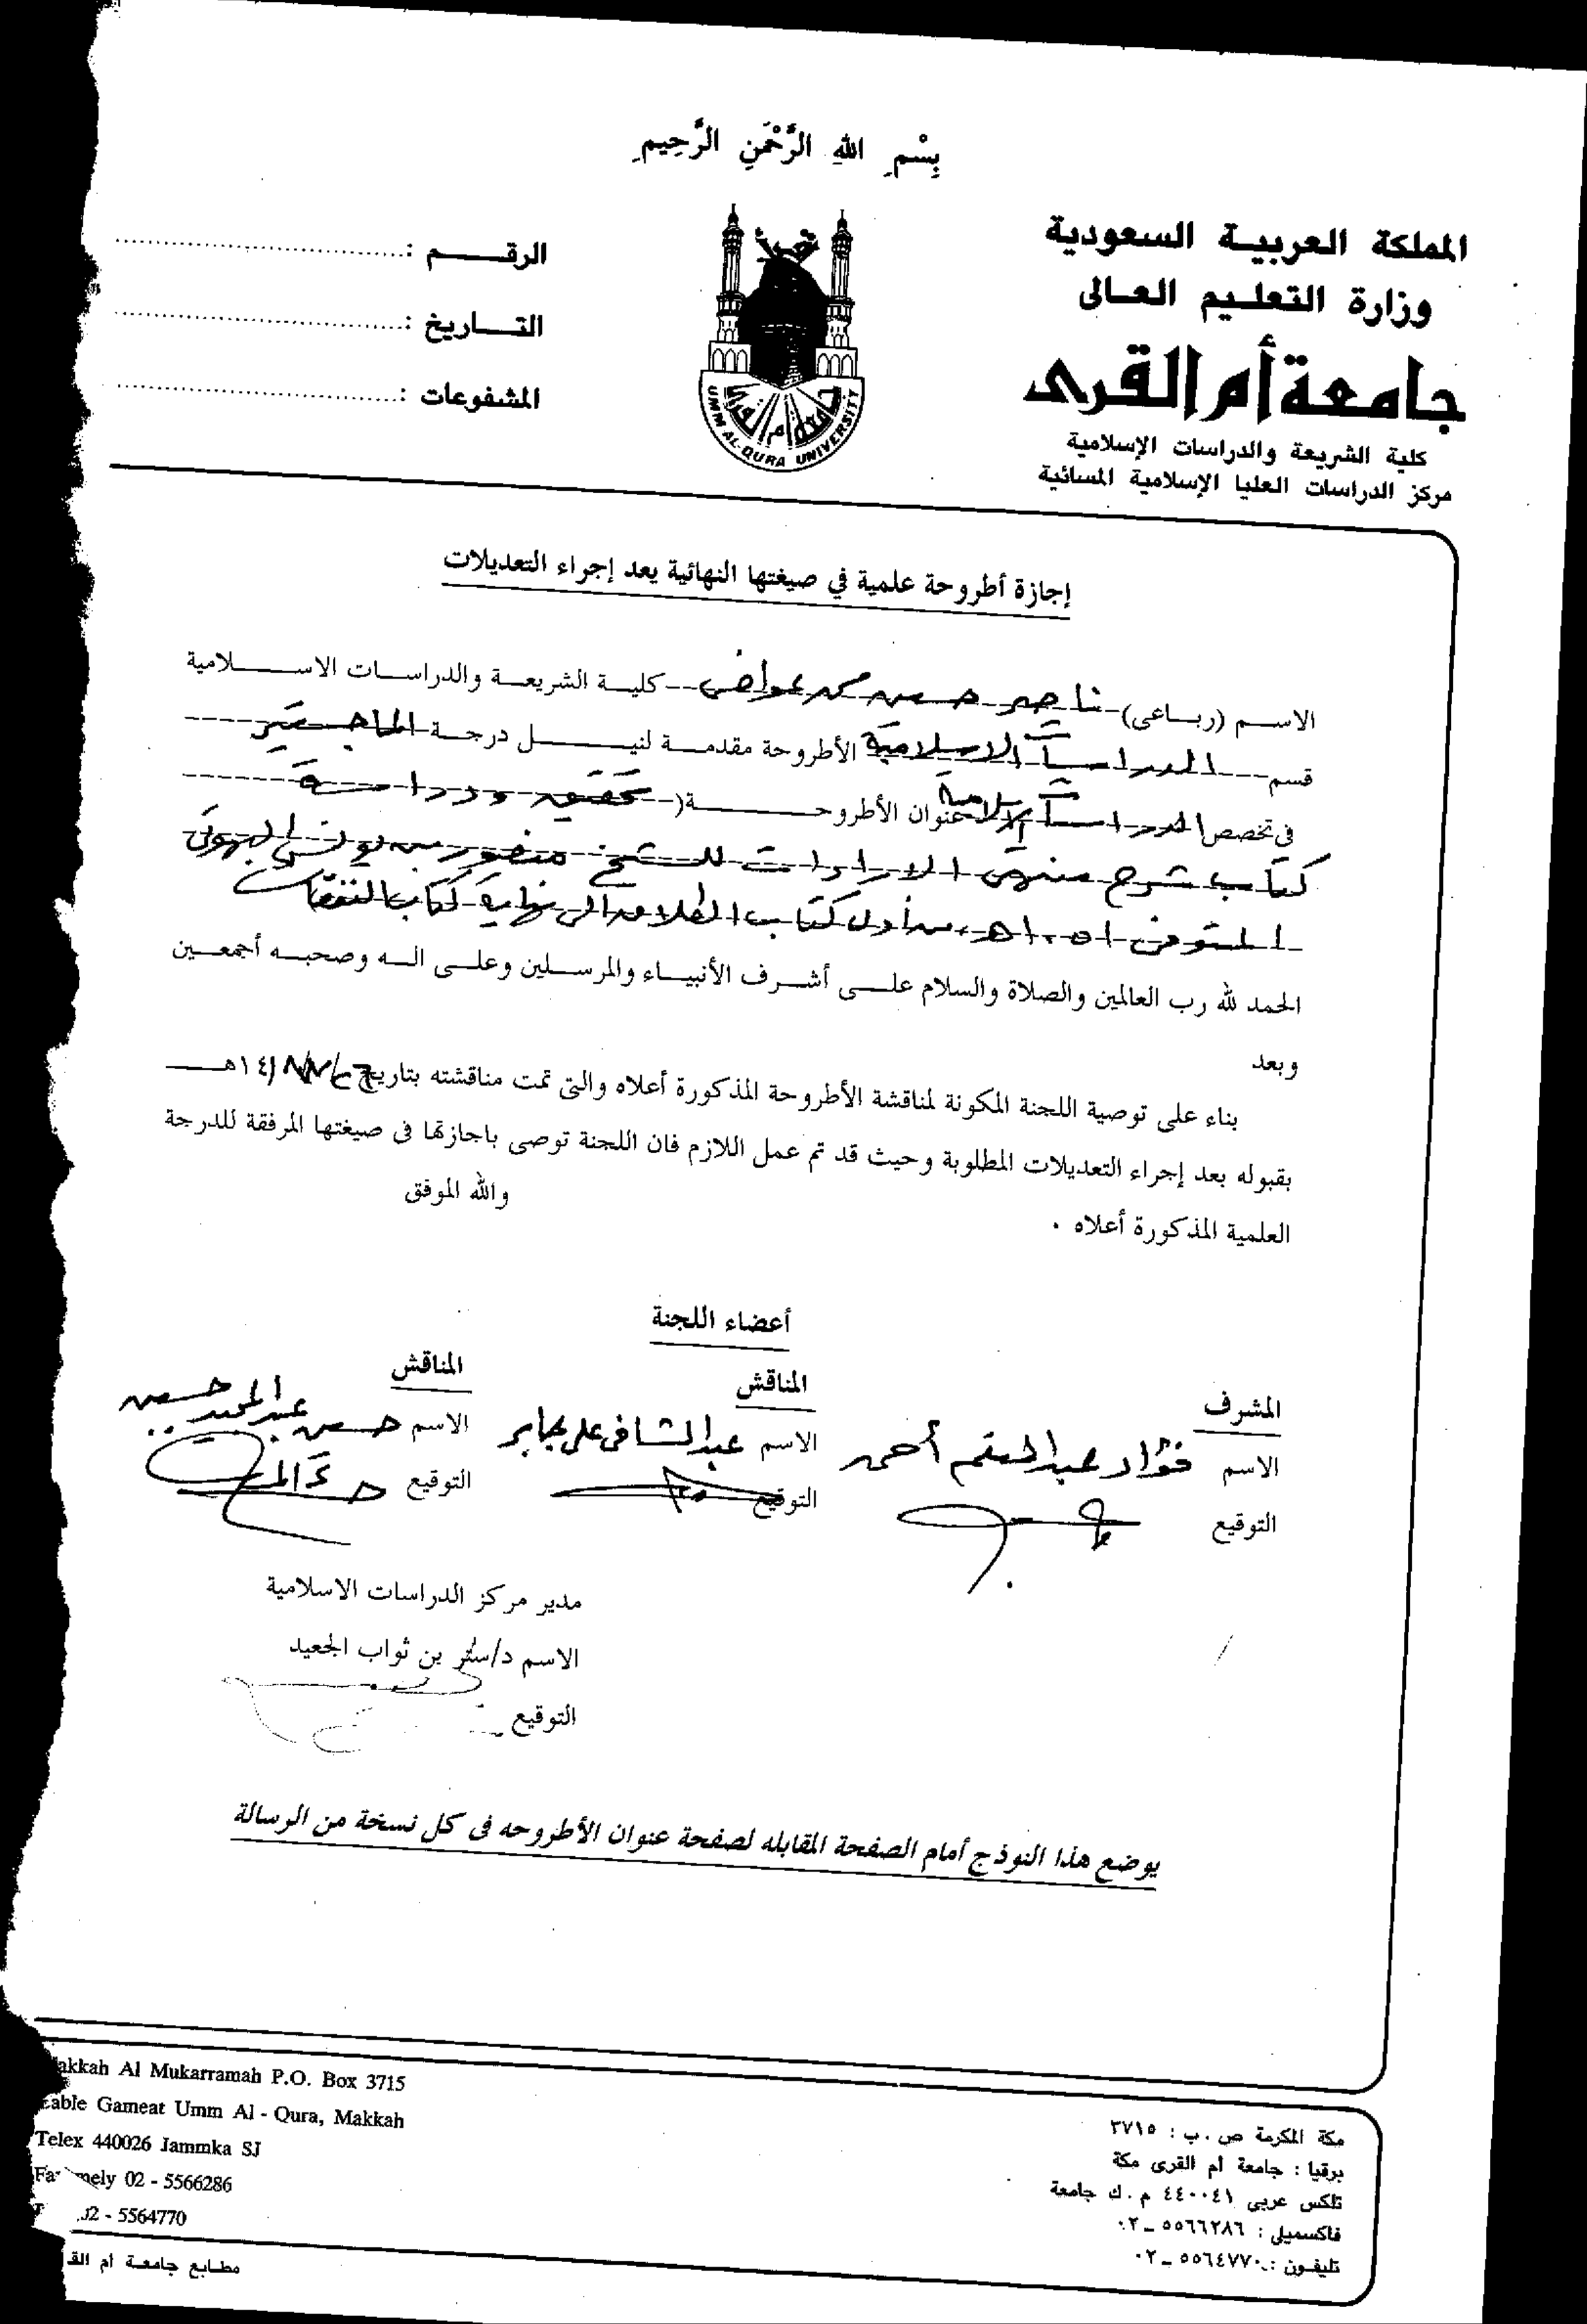 بِسْمِ اللهِ الرَّحْمَنِ الرَّحِيمِ
المملكة العربية السعودية
وزارة التعليم العالى
جامعة أم القرى
كلية الشريعة والدراسات الإسلامية
مركز الدراسات العليا الإسلامية المسائية
UMM AL-QURA UNIVERSITY
جامعة أم القرى
الرقم :
التاريخ :
المشفوعات :
إجازة أطروحة علمية في صيغتها النهائية بعد إجراء التعديلات
الاسم (رباعى) ناصر حسن محمد عواض كلية الشريعة والدراسات الاسلامية
قسم الدراسات الإسلامية الأطروحة مقدمة لنيل درجة الماجستير
في تخصص الدراسات الإسلامية عنوان الأطروحة ( تحقيق ودراسة
كتاب شرح منتهى الارادات للشيخ منصور بن يونس البهوتى
المتوفى ١٠٥١هـ، من أول كتاب الطلاق إلى نهاية كتاب النفقات
الحمد لله رب العالمين والصلاة والسلام على أشرف الأنبياء والمرسلين وعلى اله وصحبه أجمعين
وبعد
بناء على توصية اللجنة المكونة لمناقشة الأطروحة المذكورة أعلاه والتى تمت مناقشته بتاريخ هـ
بقبوله بعد إجراء التعديلات المطلوبة وحيث قد تم عمل اللازم فان اللجنة توصى باجازتها فى صيغتها المرفقة للدرجة
العلمية المذكورة أعلاه .
والله الموفق
أعضاء اللجنة
المشرف المناقش المناقش
الاسم فؤاد عبد المنعم أحمد الاسم عبد الشافى على جابر الاسم حسن عبد الحميد حسن
التوقيع التوقيع التوقيع
مدير مركز الدراسات الاسلامية
الاسم د/ستر بن ثواب الجعيد
التوقيع
يوضع هذا النوذج أمام الصفحة المقابله لصفحة عنوان الأطروحه فى كل نسخة من الرسالة
akkah Al Mukarramah P.O. Box 3715
able Gameat Umm Al - Qura, Makkah
Telex 440026 Jammka SJ
mely 02 - 5566286
02 - 5564770
مكة المكرمة ص . ب : ٣٧١٥
برقيا : جامعة أم القرى مكة
تلكس عربى ٤٤٠٠٤١ م . ك جامعة
فاكسميلى : ٥٥٦٦٢٨٦ ـ ٠٢
تليفون : ٥٥٦٤٧٧٠ ـ ٠٢
مطابع جامعة أم الق